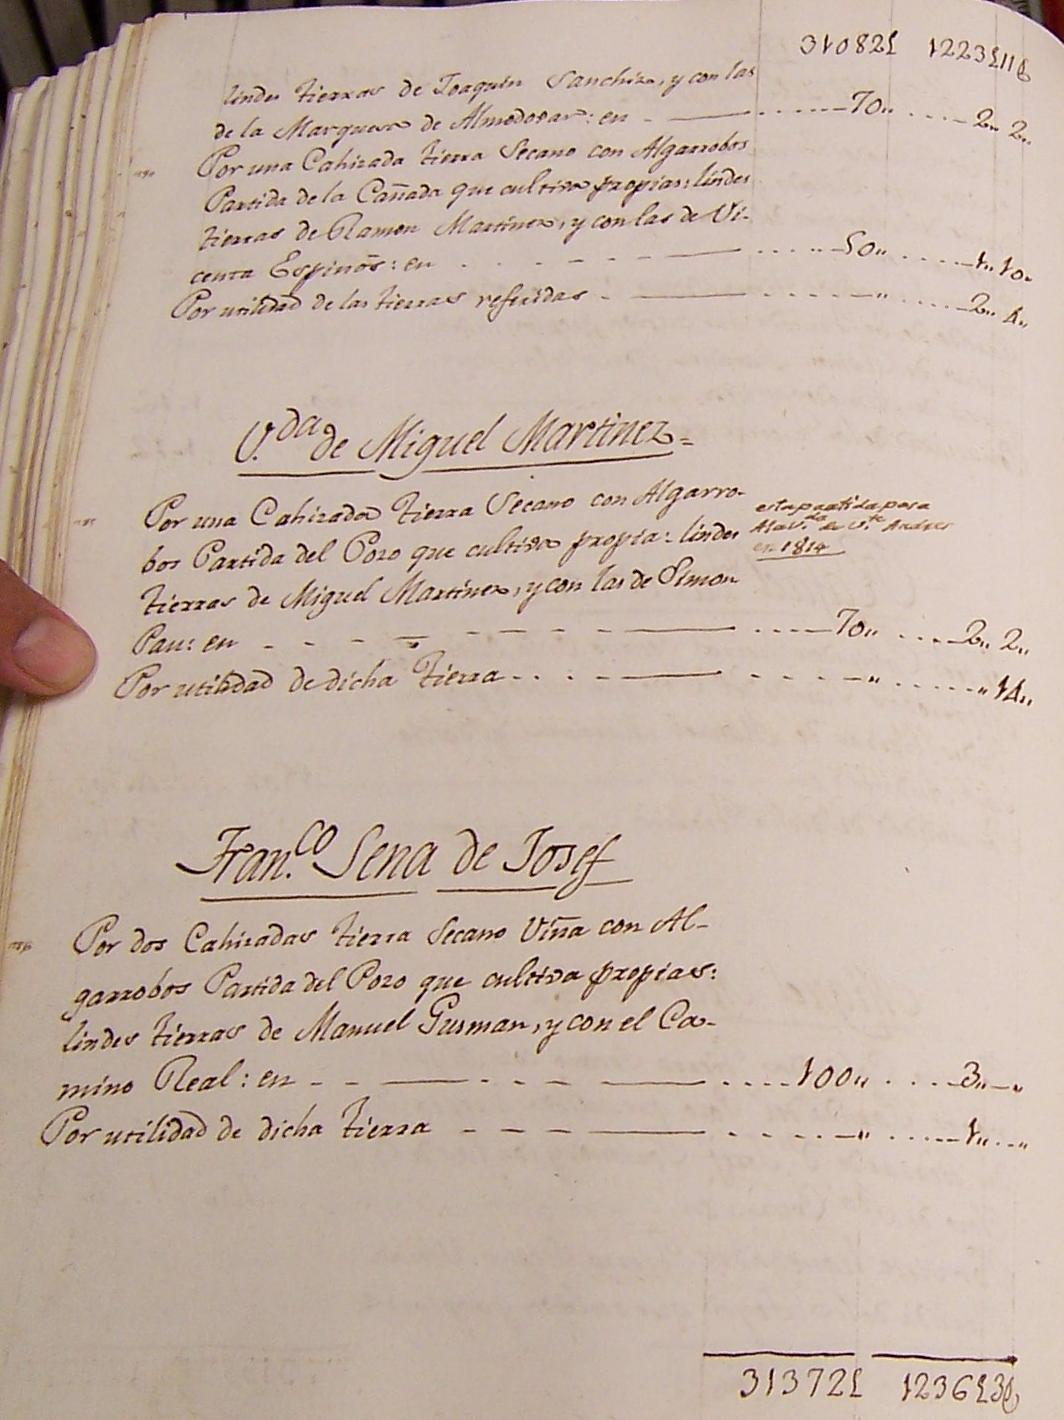 31082£ 1223£11
lindes tierras de Joaquin Sanchiz, y con las
de la Marquesa de Almodovar: en 70,, 2,, 2,,
Por una Cahizada tierra Secano con Algarrobos
Partida de la Cañada que cultiva propias: lindes
tierras de Ramon Martinez, y con las de Vi-
centa Espinós: en 50,, 1,, 10,,
Por utilidad de las tierras referidas ,, 2,, 4,,
V.da de Miguel Martinez=
Por una Cahizada tierra Secano con Algarro-
bos Partida del Pozo que cultiva propia: lindes
tierras de Miguel Martinez, y con las de Simon
Pau: en 70,, 2,, 2,,
Por utilidad de dicha tierra ,, ,, 14,,
esta partida pasa
Ala V.da de V.te Andres
en 1814
Fran.co Sena de Josef
Por dos Cahizadas tierra Secano Viña con Al-
garrobos Partida del Pozo que cultiva propias:
lindes tierras de Manuel Gusman, y con el Ca-
mino Real: en 100,, 3,, ,,
Por utilidad de dicha tierra ,, 1,, ,,
31372£ 1236£3